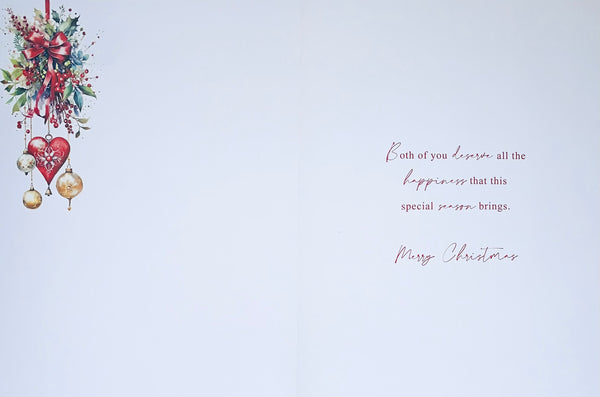 Both of you deserve all the
happiness that this
special season brings.
Merry Christmas